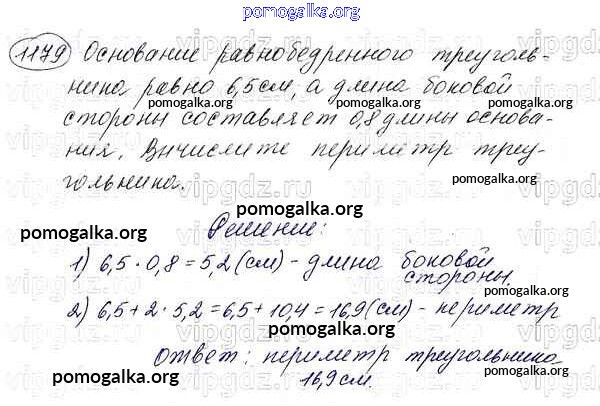 pomogalka.org
1179 Основание равнобедренного треуголь-
ника равно 6,5см, а длина боковой
pomogalka.org pomogalka.org
стороны составляет 0,8 длины основа-
pomogalka.org
ния. Вычислите периметр треу-
гольника.
pomogalka.org
vipgdz.ru
pomogalka.org
Решение:
pomogalka.org pomogalka.org
1) 6,5 · 0,8 = 5,2 (см) - длина боковой
стороны.
2) 6,5 + 2 · 5,2 = 6,5 + 10,4 = 16,9 (см) - периметр
pomogalka.org
Ответ: периметр треугольника
16,9 см.
pomogalka.org pomogalka.org